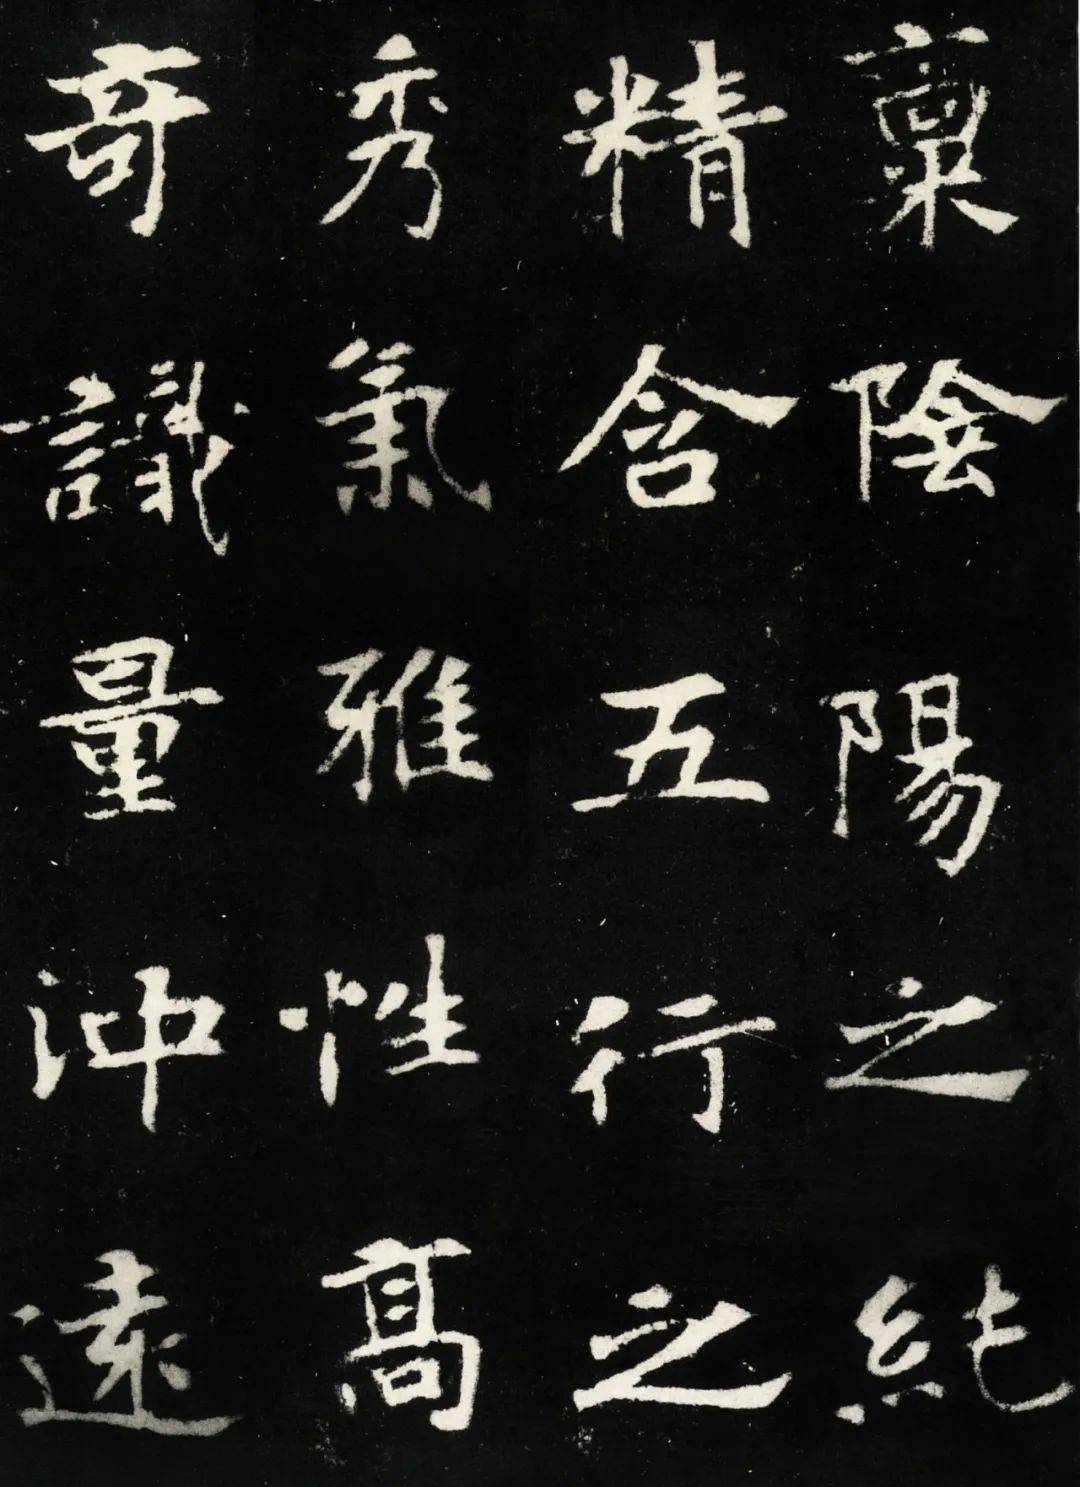 稟陰陽之純
精含五行之
秀氣雅性高
奇識量沖遠